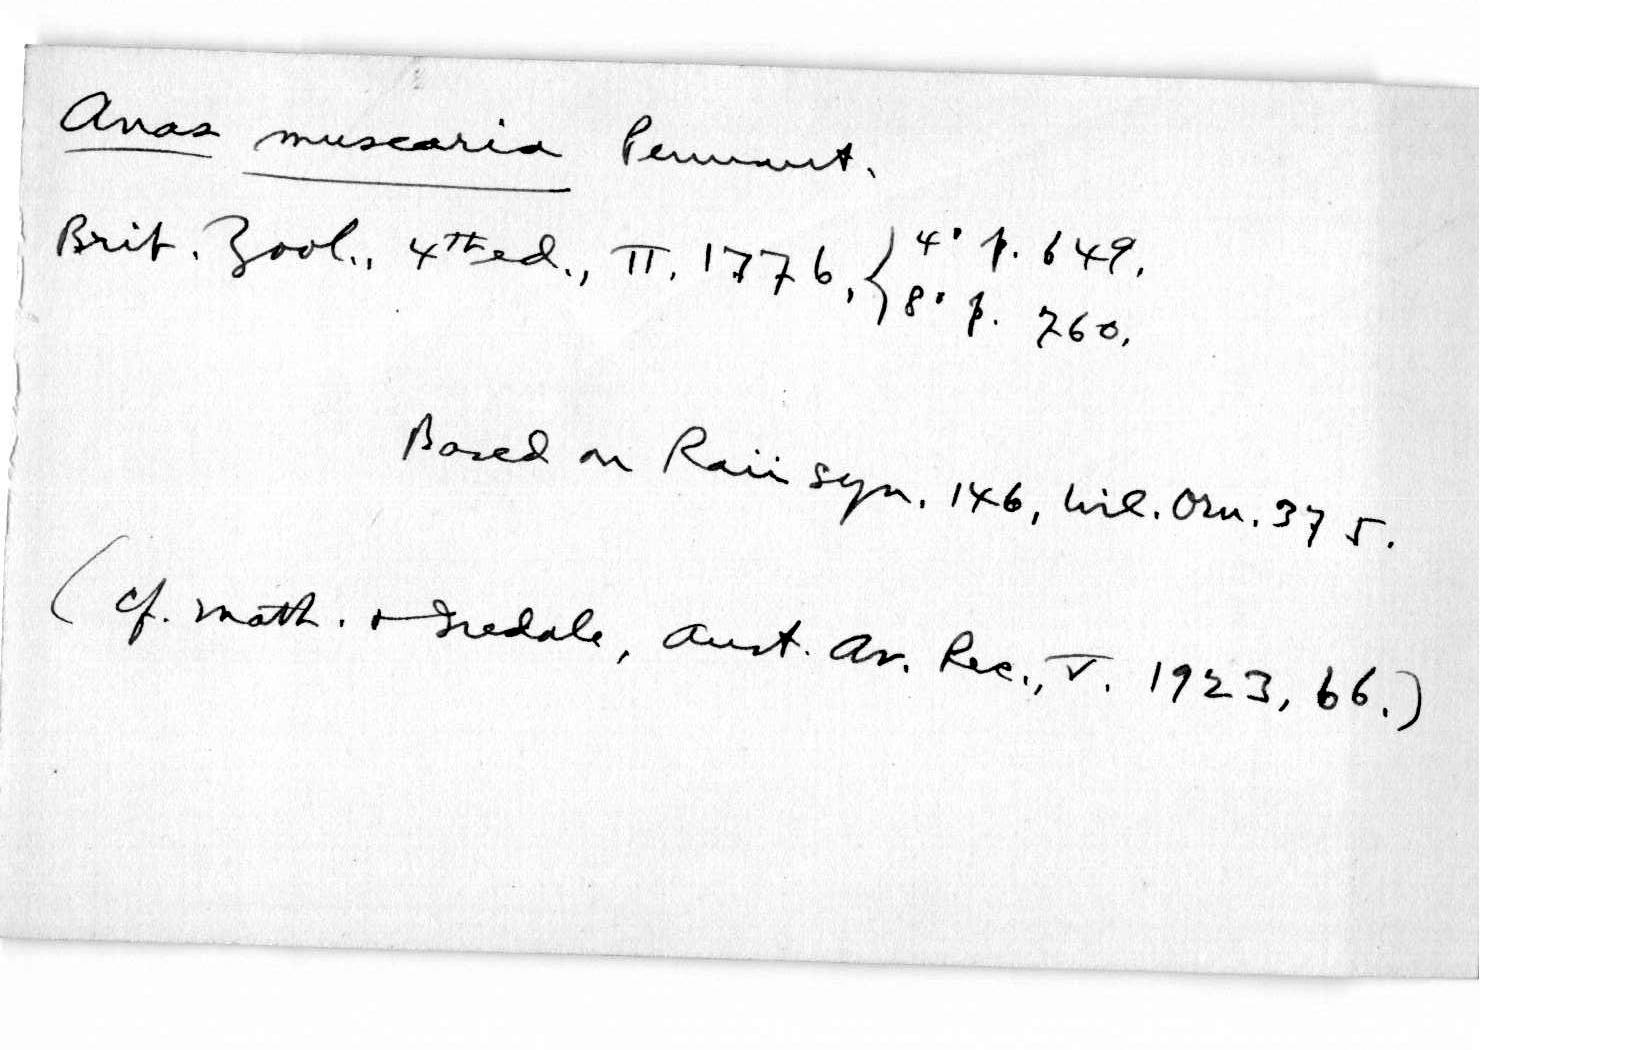 Anas muscaria Pennant.
Brit. Zool., 4th ed., II. 1776, { 4° p. 649.
8° p. 260.
Based on Raii Syn. 146, Wil. Orn. 375.
(cf. Math. + Iredale, Aust. Av. Rec., V. 1923, 66.)